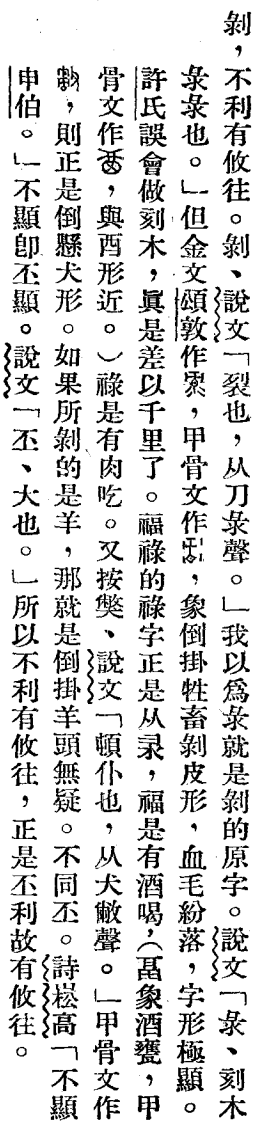 剝，不利有攸往。剝、說文「裂也，从刀彔聲。」我以爲彔就是剝的原字。說文「彔、刻木
彔彔也。」但金文頌敦作，甲骨文作，象倒掛牲畜剝皮形，血毛紛落，字形極顯。
許氏誤會做刻木，眞是差以千里了。福祿的祿字正是从彔，福是有酒喝，（畐象酒甕，甲
骨文作，與酉形近。）祿是有肉吃。又按獘、說文「頓仆也，从犬敝聲。」甲骨文作
，則正是倒懸犬形。如果所剝的是羊，那就是倒掛羊頭無疑。不同丕。詩崧高「不顯
申伯。」不顯卽丕顯。說文「丕、大也。」所以不利有攸往，正是丕利故有攸往。